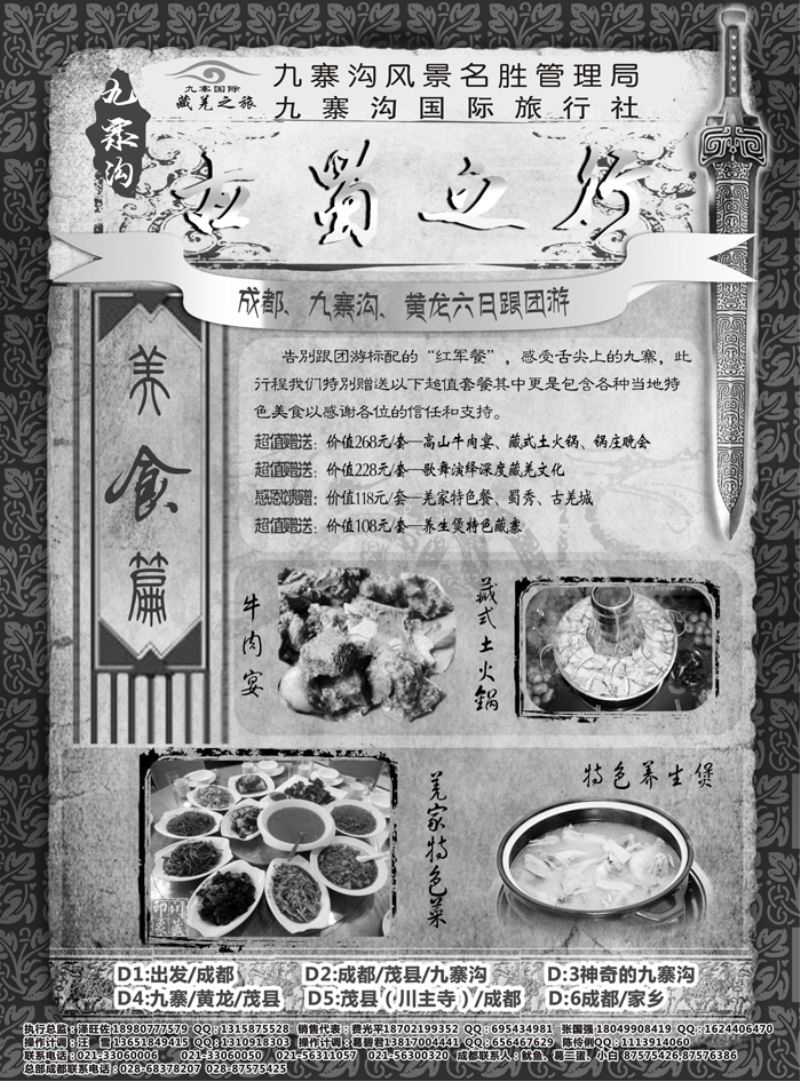 九寨沟
九寨国际
藏羌之旅
九寨沟风景名胜管理局
九寨沟国际旅行社
古蜀之行
成都、九寨沟、黄龙六日跟团游
美食篇
告别跟团游标配的“红军餐”，感受舌尖上的九寨，此
行程我们特别赠送以下超值套餐其中更是包含各种当地特
色美食以感谢各位的信任和支持。
超值赠送：价值268元/套—高山牛肉宴、藏式土火锅、锅庄晚会
超值赠送：价值228元/套—歌舞演绎深度藏羌文化
感恩馈赠：价值118元/套—羌家特色餐、蜀秀、古羌城
超值赠送：价值108元/套—养生煲特色藏寨
牛肉宴
藏式土火锅
羌家特色菜
特色养生煲
D1:出发/成都 D2:成都/茂县/九寨沟 D:3神奇的九寨沟
D4:九寨/黄龙/茂县 D5:茂县（川主寺）/成都 D:6成都/家乡
执行总监：泽旺佐18980777579 QQ：1315875528 销售代表：费光平18702199352 QQ：695434981 张国强18049908419 QQ：1624406470
操作计调：汪 雪 13651849415 QQ：1310918303 操作计调：葛碧君13817004441 QQ：656467629 陈伶俐QQ：1113914060
联系电话：021-33060006 021-33060050 021-56311057 021-56300320 成都联系人：鱿鱼、葛二蛋、小白 87575426,87576386
总部成都联系电话：028-68378207 028-87575425